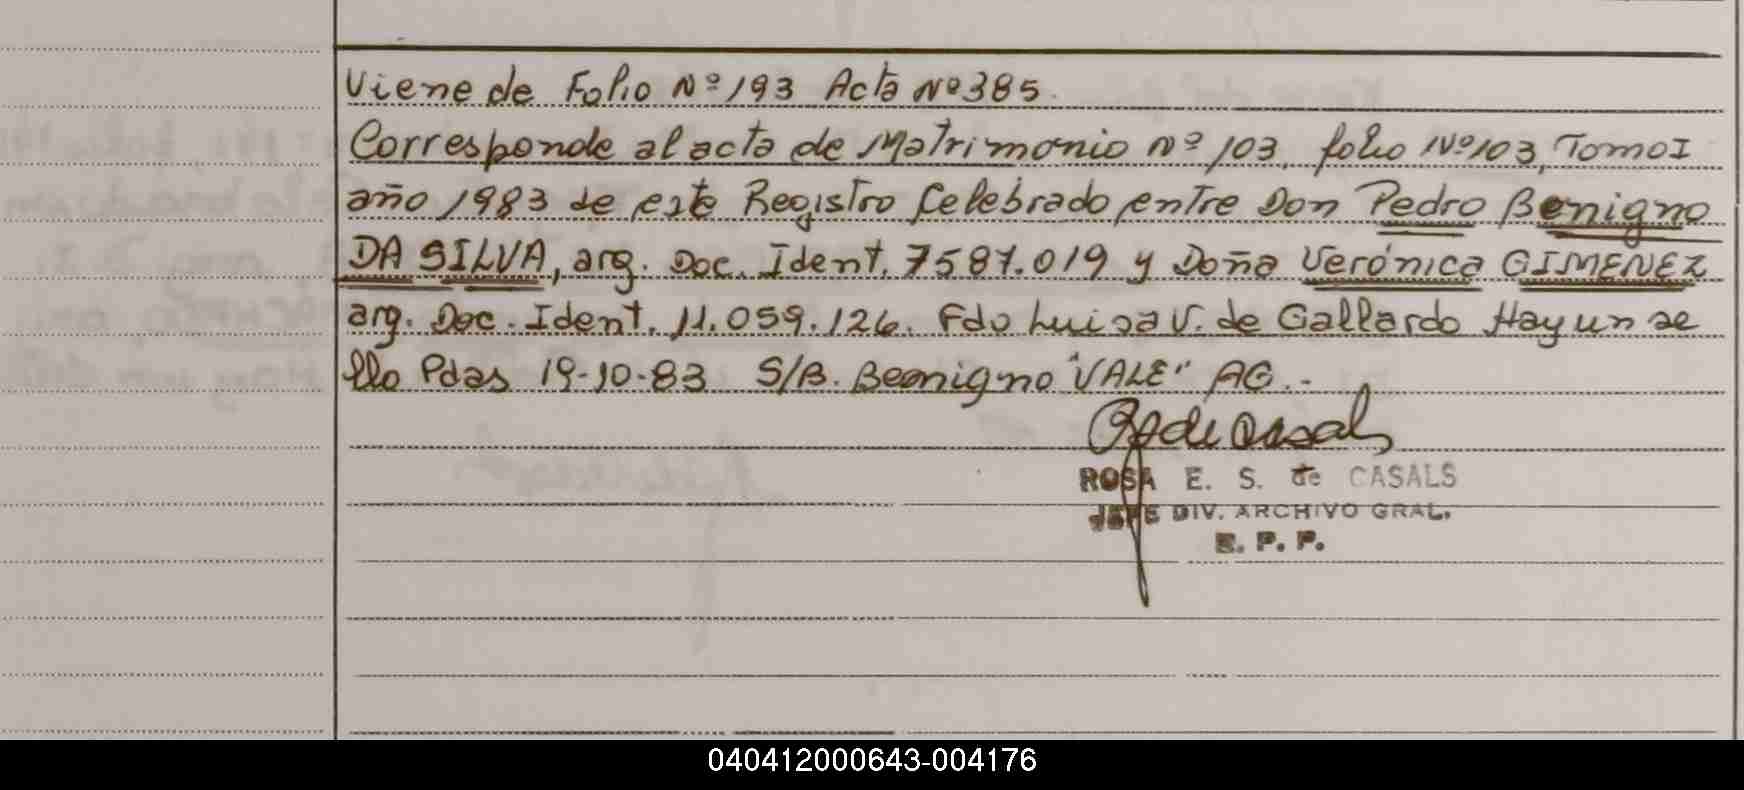 Viene de Folio Nº 193 Acta Nº 385.
Corresponde al acta de Matrimonio Nº 103, folio Nº 103, Tomo I
año 1983 de este Registro Celebrado entre Don Pedro Benigno
DA SILVA, arg. Doc. Ident. 7587.019 y Doña Verónica GIMENEZ
arg. Doc. Ident. 11.059.126. Fdo Luisa V. de Gallardo Hay un se
llo Pdas 19-10-83 S/B. Benigno "VALE" AG.-
R de Casals
ROSA E. S. de CASALS
JEFE DIV. ARCHIVO GRAL.
E. P. P.
040412000643-004176